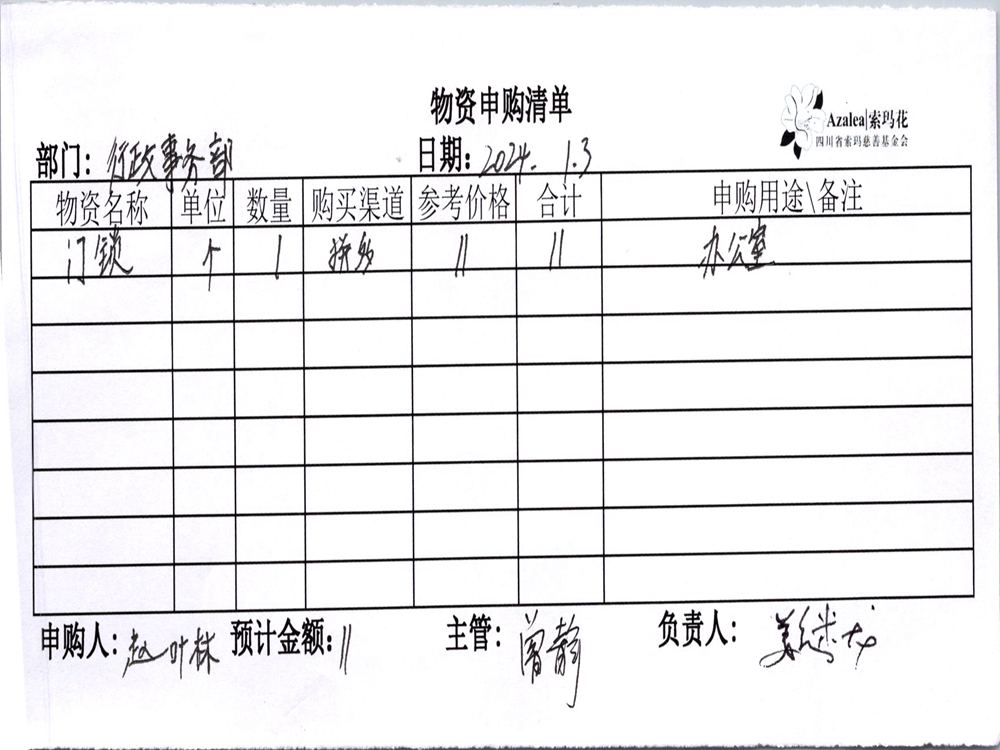 物资申购清单
Azalea|索玛花
四川省索玛慈善基金会
部门：行政事务部 日期：2024.1.3
物资名称 单位 数量 购买渠道 参考价格 合计 申购用途\备注
门锁 个 1 拼多 11 11 办公室
申购人：赵叶林 预计金额：11 主管：曾静 负责人：